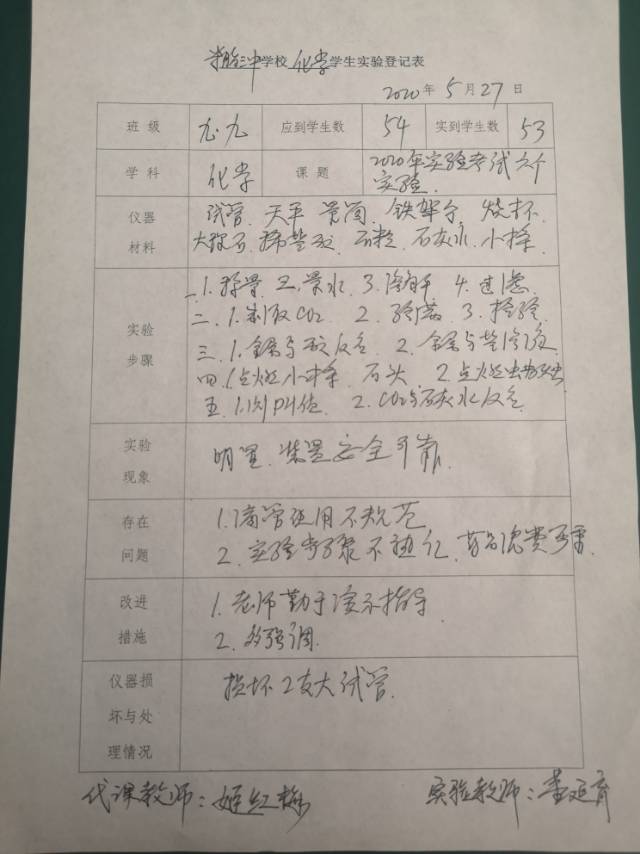 三中学校 化学 学生实验登记表
2020年 5月27日
班级 九.九 应到学生数 54 实到学生数 53
学科 化学 课题 2020年实验考试六个
实验.
仪器 试管. 天平 量筒. 铁架台. 烧杯.
材料 大理石. 稀盐酸. 石蕊. 石灰水. 小棒.
一.1.称量 2.量水 3.溶解 4.过滤.
二.1.制取CO2 2.验满 3.检验.
实验 三.1.金属与酸反应 2.金属与盐溶液
步骤 四.1.点燃小木条 石头 2.点燃
五.1.测PH值. 2.CO2与石灰水反应
实验 明显. 装置安全可靠.
现象
存在 1.滴管使用不规范
问题 2.实验步骤不熟化. 药品浪费严重.
改进 1.老师勤于演示指导
措施 2.多强调.
仪器损 损坏2支大试管.
坏与处
理情况
代课教师：姬红梅 实验教师：董延育